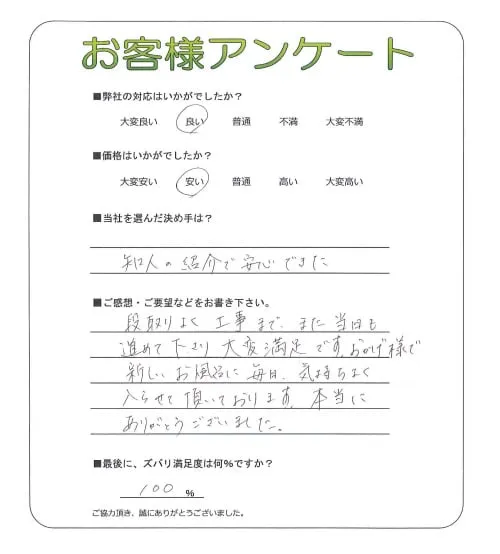 お客様アンケート
■弊社の対応はいかがでしたか？
大変良い　良い　普通　不満　大変不満
■価格はいかがでしたか？
大変安い　安い　普通　高い　大変高い
■当社を選んだ決め手は？
知人の紹介で安心できた
■ご感想・ご要望などをお書き下さい。
段取りよく工事まで、また当日も
進めて下さり大変満足です。おかげ様で
新しいお風呂に毎日、気持ちよく
入らせて頂いております。本当に
ありがとうございました。
■最後に、ズバリ満足度は何％ですか？
100 %
ご協力頂き、誠にありがとうございました。